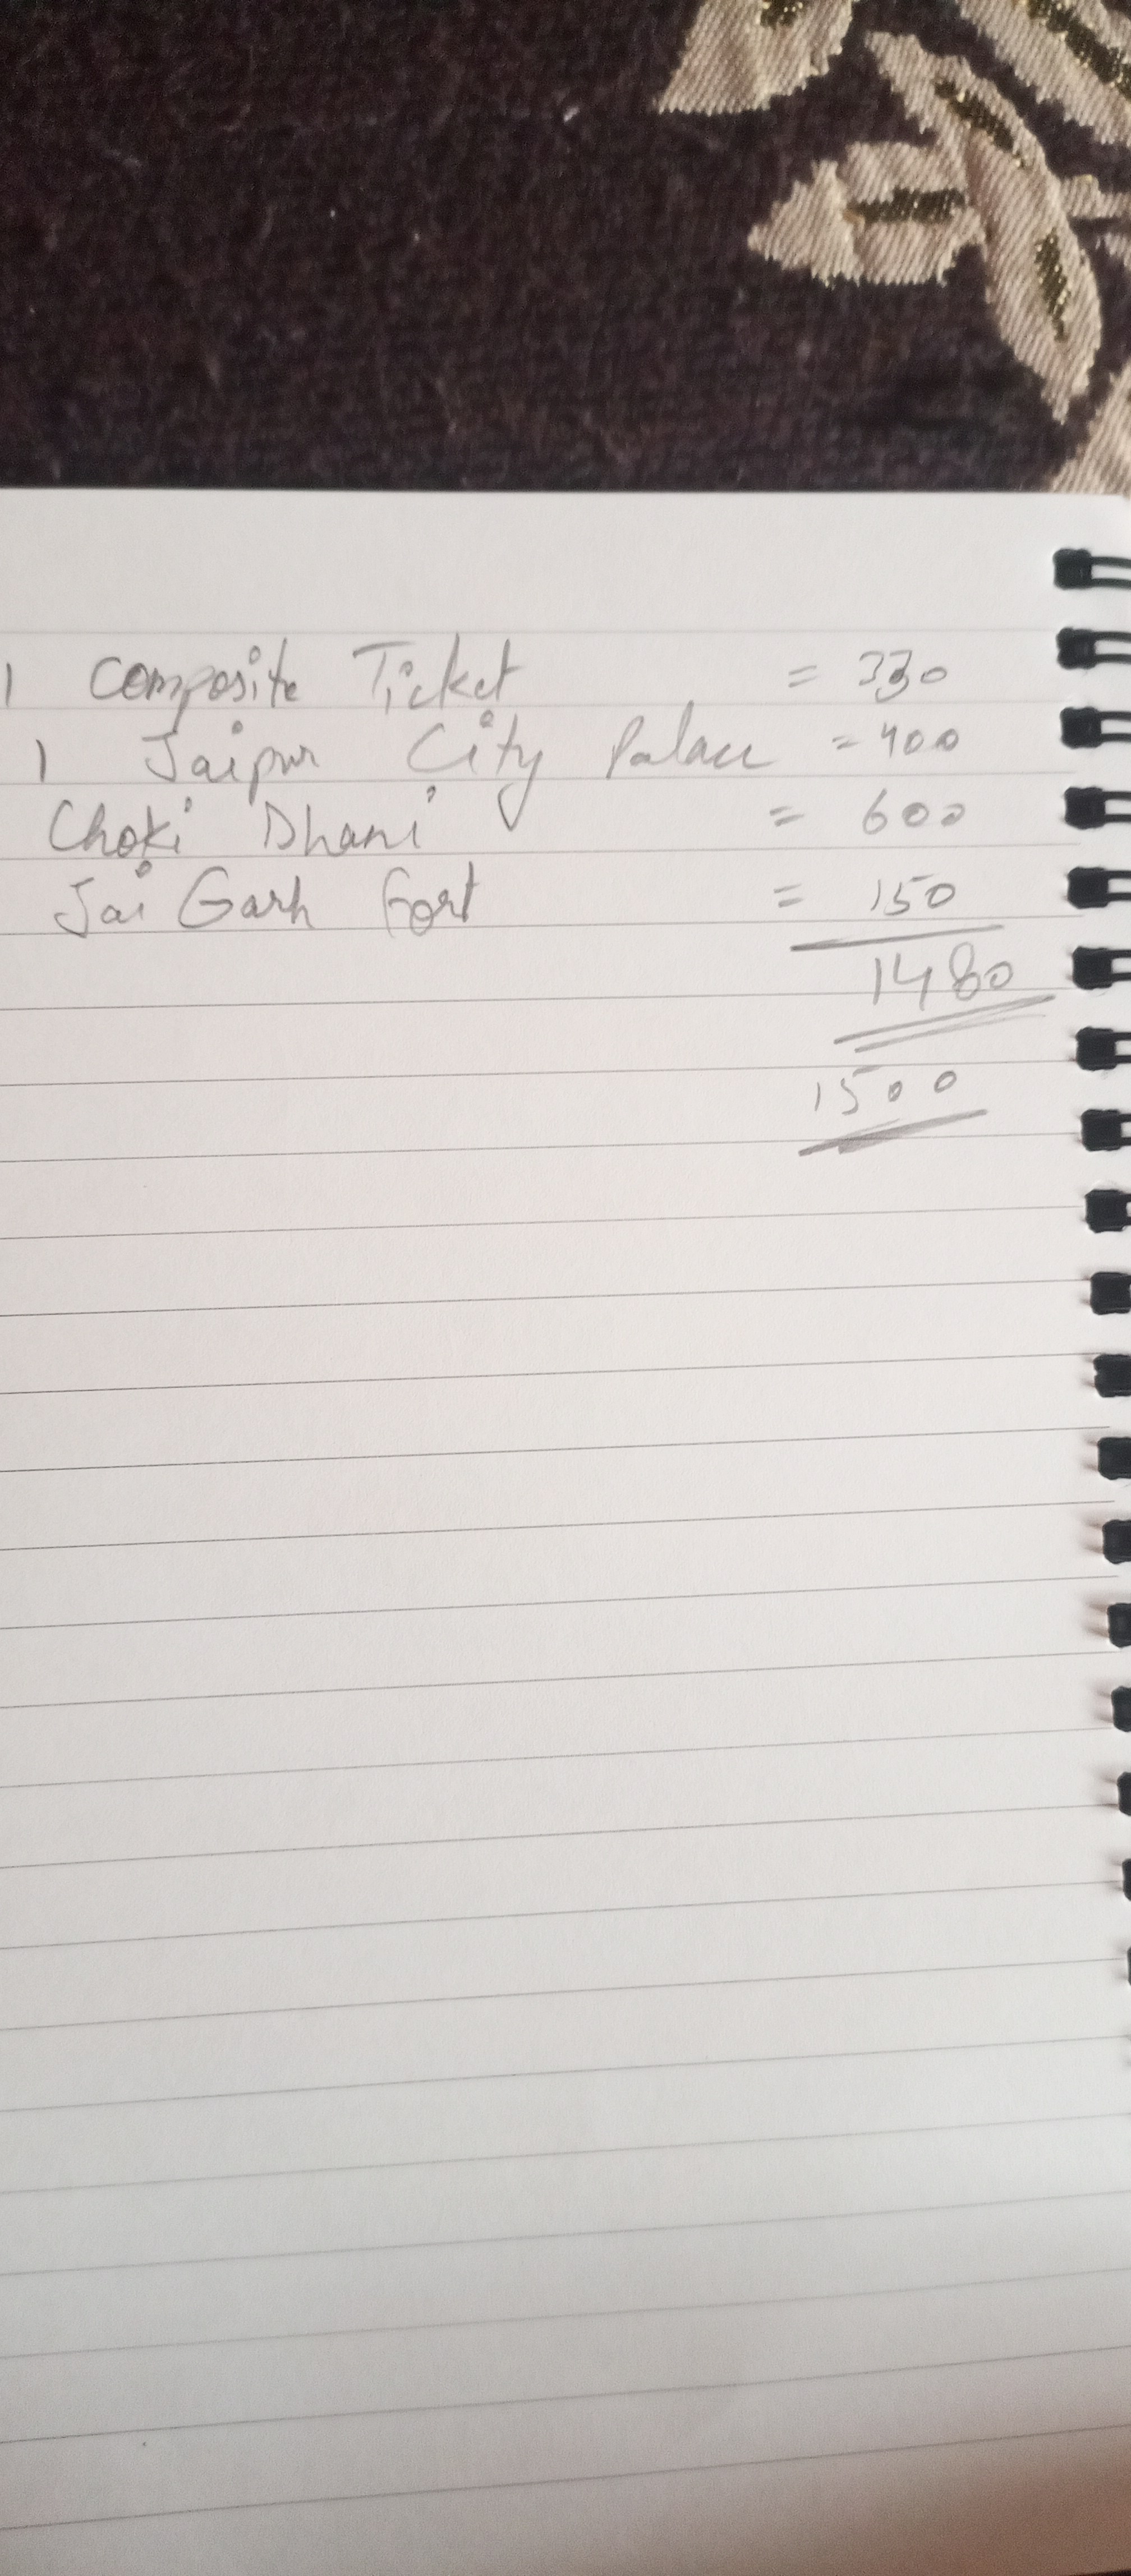 1 Composite Ticket = 330
1 Jaipur City Palace = 400
Choki Dhani = 600
Jai Garh Fort = 150
1480
1500